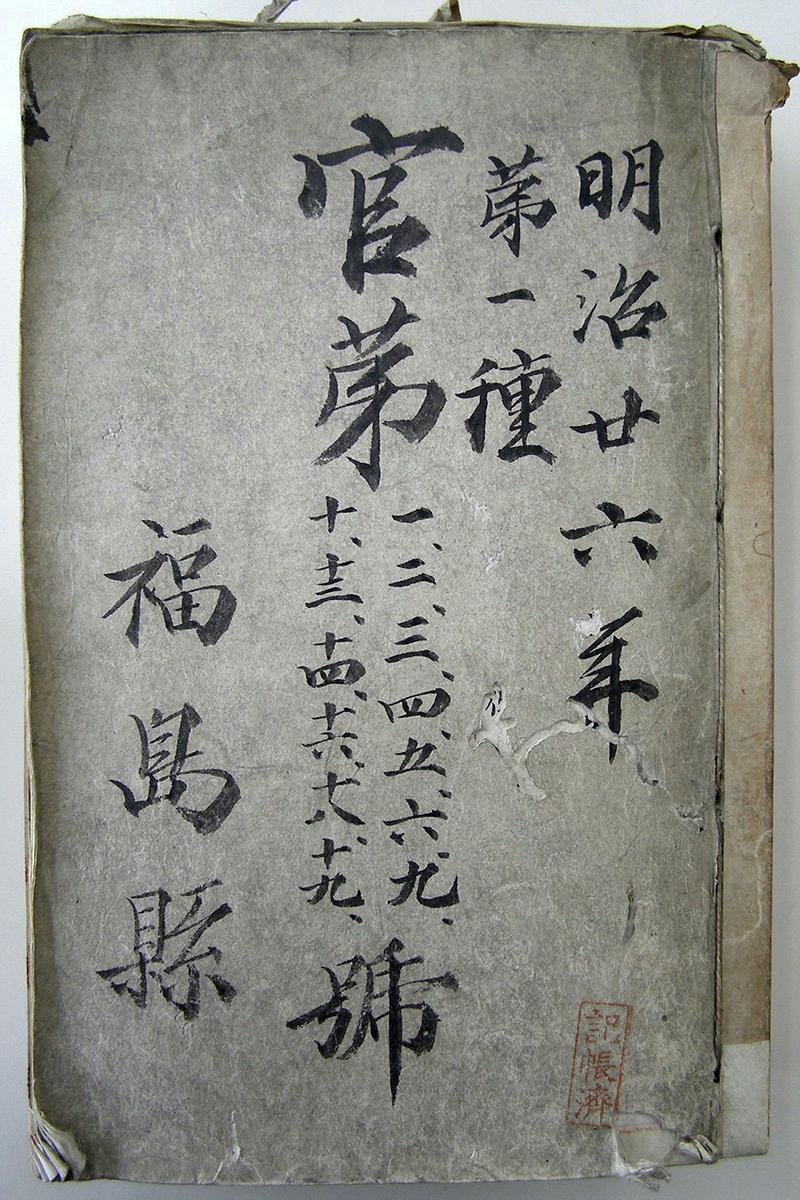 明治廿六年
苐一種
官苐
一、二、三、四、五、六、九、
十、十三、十四、十六、十八、十九、
號
福島縣
記帳濟